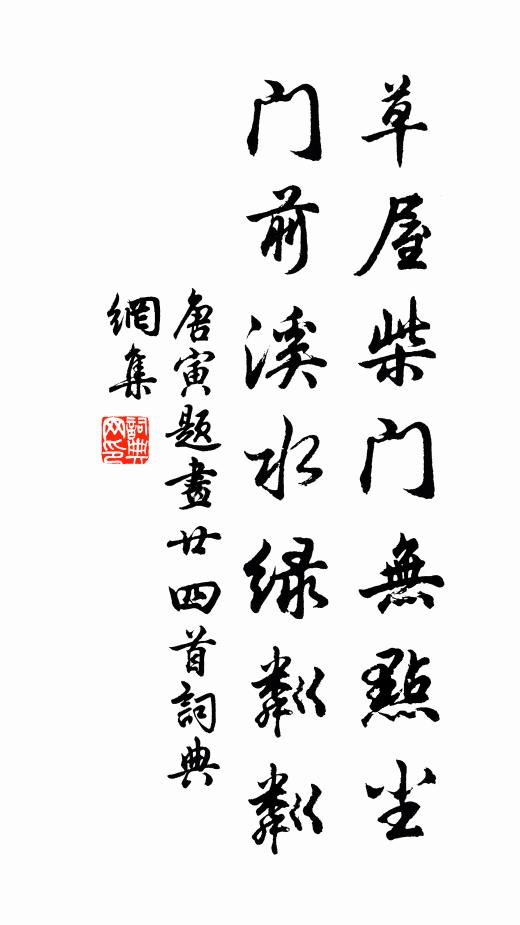 草屋柴門無點尘
門前溪水绿粼粼
唐寅題畫廿四首詞典
網集
詞典網印